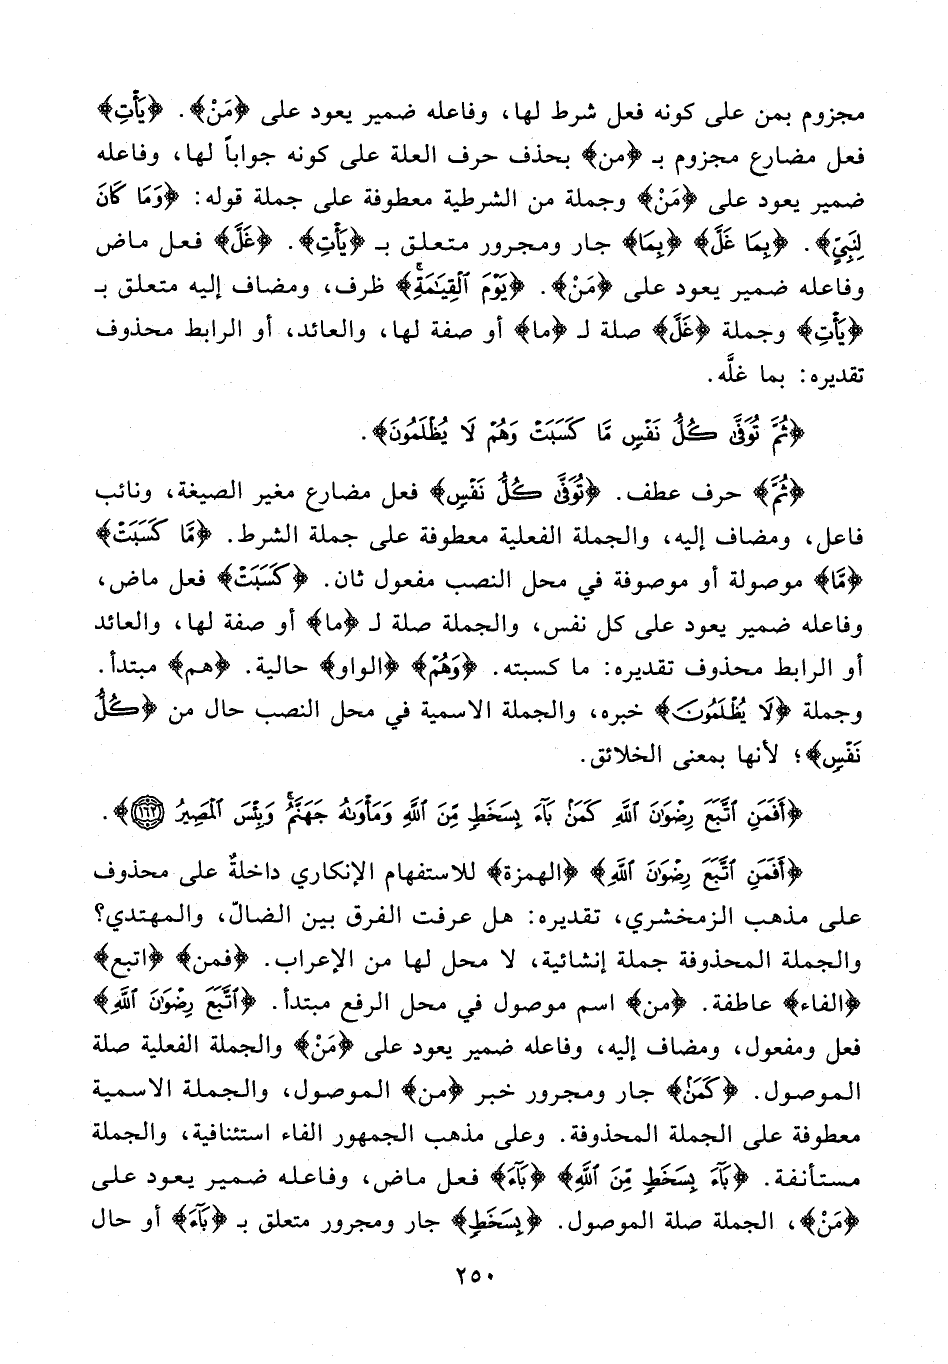 مجزوم بمن على كونه فعل شرط لها، وفاعله ضمير يعود على ﴿مَنْ﴾. ﴿يَأْتِ﴾
فعل مضارع مجزوم بـ ﴿من﴾ بحذف حرف العلة على كونه جواباً لها، وفاعله
ضمير يعود على ﴿مَنْ﴾ وجملة من الشرطية معطوفة على جملة قوله: ﴿وَمَا كَانَ
لِنَبِيٍّ﴾. ﴿بِمَا غَلَّ﴾ ﴿بِمَا﴾ جار ومجرور متعلق بـ ﴿يَأْتِ﴾. ﴿غَلَّ﴾ فعل ماض
وفاعله ضمير يعود على ﴿مَنْ﴾. ﴿يَوْمَ ٱلْقِيَٰمَةِۚ﴾ ظرف، ومضاف إليه متعلق بـ
﴿يَأْتِ﴾ وجملة ﴿غَلَّ﴾ صلة لـ ﴿ما﴾ أو صفة لها، والعائد، أو الرابط محذوف
تقديره: بما غلَّه.
﴿ثُمَّ تُوَفَّىٰ كُلُّ نَفْسٍ مَّا كَسَبَتْ وَهُمْ لَا يُظْلَمُونَ﴾.
﴿ثُمَّ﴾ حرف عطف. ﴿تُوَفَّىٰ كُلُّ نَفْسٍ﴾ فعل مضارع مغير الصيغة، ونائب
فاعل، ومضاف إليه، والجملة الفعلية معطوفة على جملة الشرط. ﴿مَّا كَسَبَتْ﴾
﴿مَّا﴾ موصولة أو موصوفة في محل النصب مفعول ثان. ﴿كَسَبَتْ﴾ فعل ماض،
وفاعله ضمير يعود على كل نفس، والجملة صلة لـ ﴿ما﴾ أو صفة لها، والعائد
أو الرابط محذوف تقديره: ما كسبته. ﴿وَهُمْ﴾ ﴿الواو﴾ حالية. ﴿هم﴾ مبتدأ.
وجملة ﴿لَا يُظْلَمُونَ﴾ خبره، والجملة الاسمية في محل النصب حال من ﴿كُلُّ
نَفْسٍ﴾؛ لأنها بمعنى الخلائق.
﴿أَفَمَنِ ٱتَّبَعَ رِضْوَٰنَ ٱللَّهِ كَمَنۢ بَآءَ بِسَخَطٍ مِّنَ ٱللَّهِ وَمَأْوَىٰهُ جَهَنَّمُۚ وَبِئْسَ ٱلْمَصِيرُ ١٦٢﴾.
﴿أَفَمَنِ ٱتَّبَعَ رِضْوَٰنَ ٱللَّهِ﴾ ﴿الهمزة﴾ للاستفهام الإنكاري داخلةٌ على محذوف
على مذهب الزمخشري، تقديره: هل عرفت الفرق بين الضالّ، والمهتدي؟
والجملة المحذوفة جملة إنشائية، لا محل لها من الإعراب. ﴿فمن﴾ ﴿اتبع﴾
﴿الفاء﴾ عاطفة. ﴿من﴾ اسم موصول في محل الرفع مبتدأ. ﴿ٱتَّبَعَ رِضْوَٰنَ ٱللَّهِ﴾
فعل ومفعول، ومضاف إليه، وفاعله ضمير يعود على ﴿مَنْ﴾ والجملة الفعلية صلة
الموصول. ﴿كَمَنۢ﴾ جار ومجرور خبر ﴿من﴾ الموصول، والجملة الاسمية
معطوفة على الجملة المحذوفة. وعلى مذهب الجمهور الفاء استئنافية، والجملة
مستأنفة. ﴿بَآءَ بِسَخَطٍ مِّنَ ٱللَّهِ﴾ ﴿بَآءَ﴾ فعل ماض، وفاعله ضمير يعود على
﴿مَنْ﴾، الجملة صلة الموصول. ﴿بِسَخَطٍ﴾ جار ومجرور متعلق بـ ﴿بَآءَ﴾ أو حال
٢٥٠